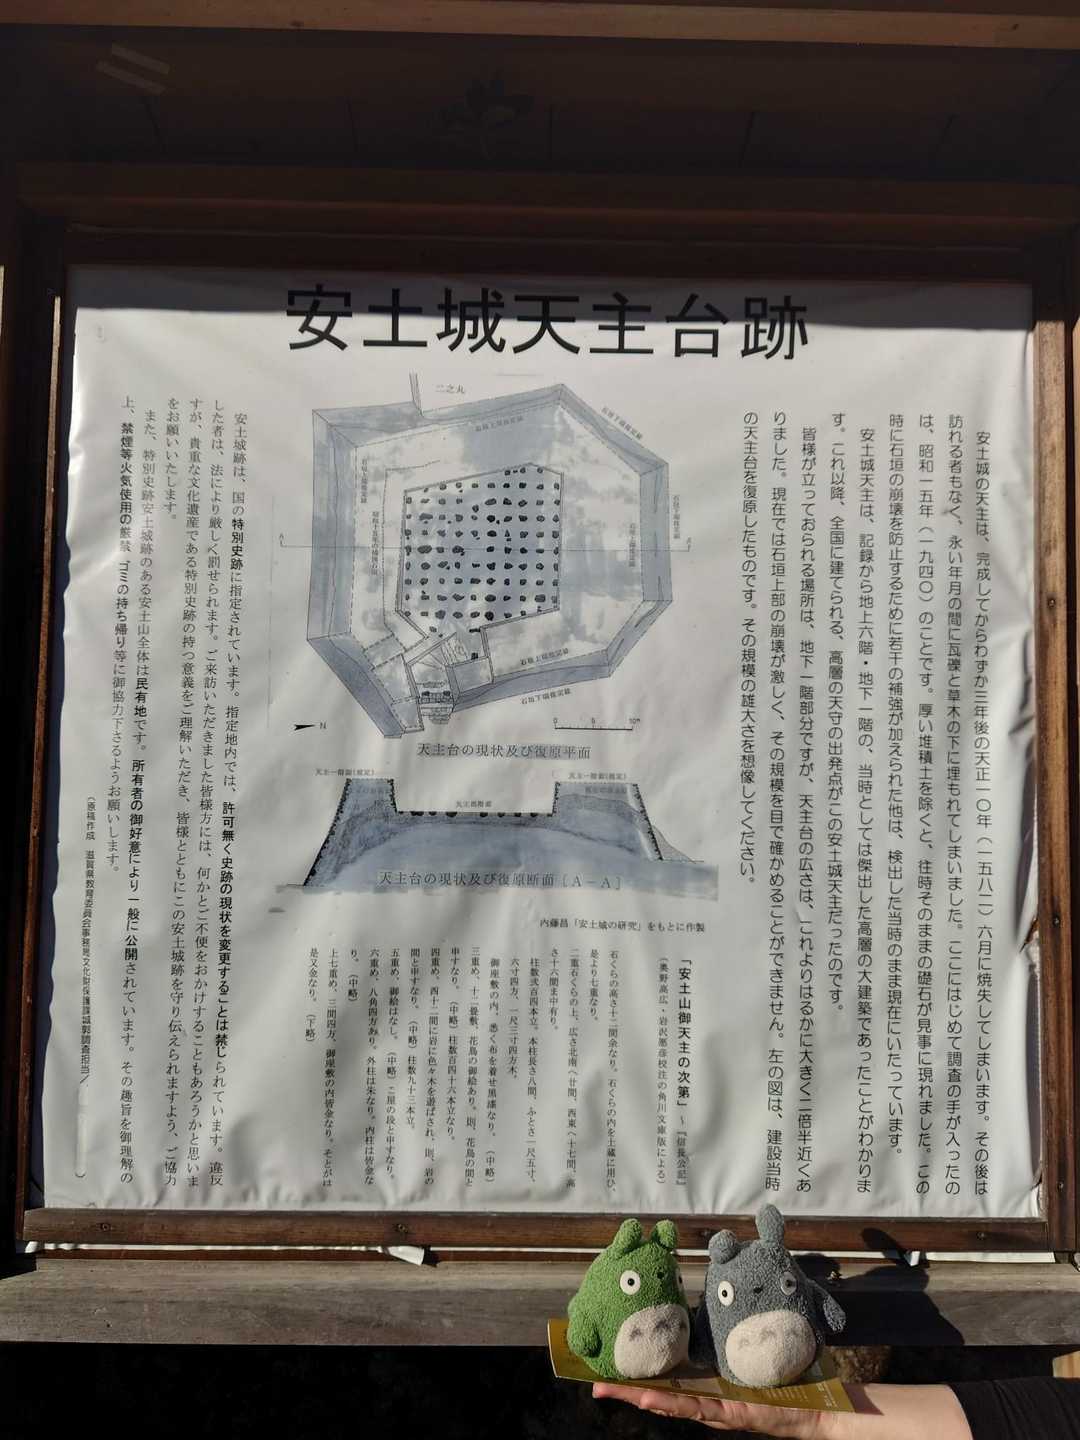 安土城天主台跡
安土城の天主は、完成してからわずか三年後の天正一〇年（一五八二）六月に焼失してしまいます。その後は
訪れる者もなく、永い年月の間に瓦礫と草木の下に埋もれてしまいました。ここにはじめて調査の手が入ったの
は、昭和一五年（一九四〇）のことです。厚い堆積土を除くと、往時そのままの礎石が見事に現れました。この
時に石垣の崩壊を防止するために若干の補強が加えられた他は、検出した当時のまま現在にいたっています。
安土城天主は、記録から地上六階・地下一階の、当時としては傑出した高層の大建築であったことがわかりま
す。これ以降、全国に建てられる、高層の天守の出発点がこの安土城天主だったのです。
皆様が立っておられる場所は、地下一階部分ですが、天主台の広さは、これよりはるかに大きく二倍半近くあ
りました。現在では石垣上部の崩壊が激しく、その規模を目で確かめることができません。左の図は、建設当時
の天主台を復原したものです。その規模の雄大さを想像してください。
二之丸
石垣上端推定線
石垣下端推定線
石垣上端推定線
石垣下端推定線
石垣上端推定線
石垣下端推定線
A
A
N
0 5 10m
天主台の現状及び復原平面
天主一階面(推定)
天主一階面(推定)
天主台の現状及び復原断面［A－A］
内藤昌「安土城の研究」をもとに作製
「安土山御天主の次第」～『信長公記』
（奥野高広・岩沢愿彦校注の角川文庫版による）
石くらの高さ十二間余なり。石くらの内を土蔵に用ひ、
是より七重なり。
二重石くらの上、広さ北南へ廿間、西東へ十七間、高
さ十六間ま中有り。
柱数弐百四本立。本柱長さ八間、ふとさ一尺五寸、
六寸四方、一尺三寸四方木。
御座敷の内、悉く布を着せ黒漆なり。（中略）
三重め、十二畳敷、花鳥の御絵あり。則、花鳥の間と
申すなり。（中略）柱数百四十六本立なり。
四重め、西十二間に岩に色々木を遊ばされ、則、岩の
間と申すなり。（中略）柱数九十三本立。
五重め、御絵はなし。（中略）こ屋の段と申すなり。
六重め、八角四方あり。外柱は朱なり。内柱は皆金な
り。（中略）
上七重め、三間四方、御座敷の内皆金なり。そとがは
是又金なり。（下略）
安土城跡は、国の特別史跡に指定されています。指定地内では、許可無く史跡の現状を変更することは禁じられています。違反
した者は、法により厳しく罰せられます。ご来訪いただきました皆様方には、何かとご不便をおかけすることもあろうかと思いま
すが、貴重な文化遺産である特別史跡の持つ意義をご理解いただき、皆様とともにこの安土城跡を守り伝えられますよう、ご協力
をお願いいたします。
また、特別史跡安土城跡のある安土山全体は民有地です。所有者の御好意により一般に公開されています。その趣旨を御理解の
上、禁煙等火気使用の厳禁、ゴミの持ち帰り等に御協力下さるようお願いします。
（原稿作成　滋賀県教育委員会事務局文化財保護課城郭調査担当）